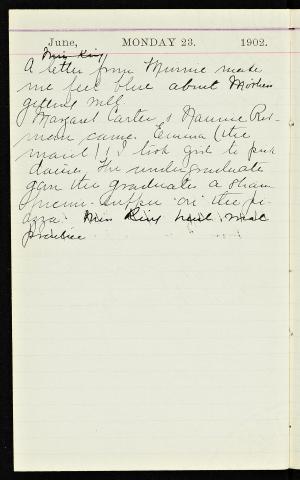 June, MONDAY 23. 1902.
Miss King
A letter from Minnie made
me feel blue about Mother
getting well.
Margaret Carter & Nannie
came. Emma (the
maid) & I took girls to pick
daisies. The undergraduate
gave the graduates a
supper on the pi-
azza. Miss King
practice